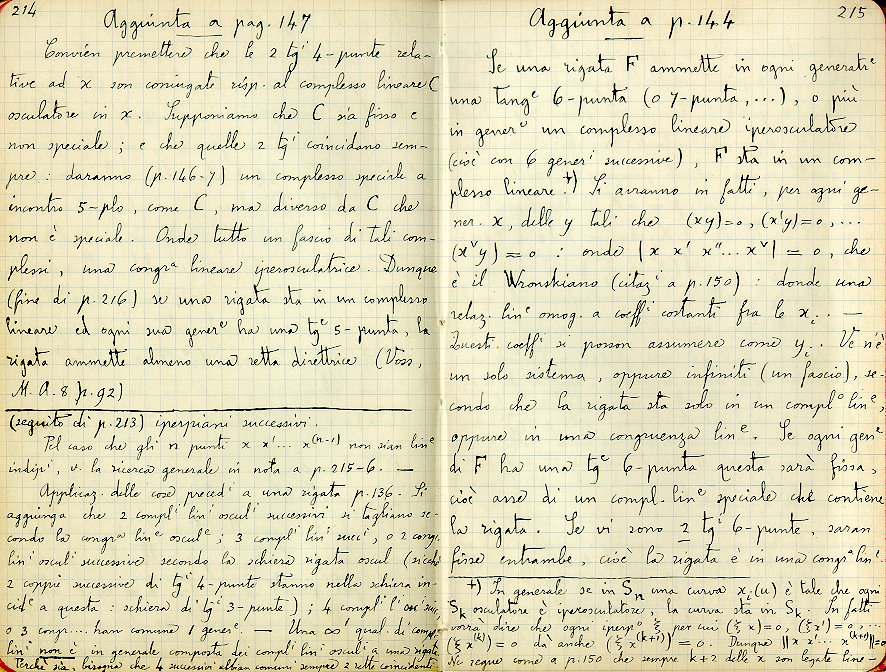 214
Aggiunta a pag. 147
Convien premettere che le 2 tgⁱ 4-punte rela-
tive ad x son coniugate risp. al complesso lineare C
osculatore in x. Supponiamo che C sia fisso e
non speciale; e che quelle 2 tgⁱ coincidano sem-
pre: daranno (p. 146-7) un complesso speciale a
incontro 5-plo, come C, ma diverso da C che
non è speciale. Onde tutto un fascio di tali com-
plessi, una congrᵃ lineare iperosculatrice. Dunque
(fine di p. 216) se una rigata sta in un complesso
lineare ed ogni sua generᵉ ha una tgᵉ 5-punta, la
rigata ammette almeno una retta direttrice (Voss,
M. A. 8 p. 92)
(seguito di p. 213) iperpiani successivi.
Pel caso che gli n punti x x' ... x⁽ⁿ⁻¹⁾ non sian linᵉ
indipⁱ, v. la ricerca generale in nota a p. 215-6. —
Applicaz. delle cose precedⁱ a una rigata p. 136. Si
aggiunga che 2 complⁱ linⁱ osculⁱ successivi si tagliano se-
condo la congrᵃ linᵉ osculᵉ; 3 complⁱ linⁱ succⁱ, o 2 congr.
linⁱ osculⁱ successive secondo la schiera rigata oscul (sicchè
2 coppie successive di tgⁱ 4-punte stanno nella schiera in-
cidᵉ a questa: schiera di tgⁱ 3-punte); 4 complⁱ lⁱ osⁱ suc
o 3 congr... han comune 1 generᵉ. — Una ∞¹ qual. di compl
linⁱ non è in generale composta dei complⁱ linⁱ osculⁱ a una rigata
Perchè sia, bisogna che 4 successivi abbian comuni sempre 2 rette coincidenti
215
Aggiunta a p. 144
Se una rigata F ammette in ogni generatᵉ
una tangᵉ 6-punta (o 7-punta, ...), o più
in generᵉ un complesso lineare iperosculatore
(cioè con 6 generⁱ successive), F sta in un com-
plesso lineare. +) Si avranno in fatti, per ogni ge-
ner. x, delle y tali che (xy)=0, (x'y)=0, ...
(xᵛy) = 0 : onde |x x' x'' ... xᵛ| = 0, che
è il Wronskiano (citazⁱ a p. 150) : donde una
relaz. linᵉ omog. a coeffⁱ costanti fra le xᵢ. —
Questi coeffⁱ si posson assumere come yᵢ. Ve n'è
un solo sistema, oppure infiniti (un fascio), se-
condo che la rigata sta solo in un complᵒ linᵉ,
oppure in una congruenza linᵉ. Se ogni genᵉ
di F ha una tgᵉ 6-punta questa sarà fissa,
cioè asse di un compl. linᵉ speciale che contiene
la rigata. Se vi sono 2 tgⁱ 6-punte, saran
fisse entrambe, cioè la rigata è in una congrᵃ linᵉ.
+) In generale se in Sₙ una curva xᵢ(u) è tale che ogni
Sₖ osculatore è iperosculatore, la curva sta in Sₖ. In fatti
vorrà dire che ogni iperpᵒ ξ per cui (ξx)=0, (ξx')=0, ...
(ξx⁽ᵏ⁾)=0 dà anche (ξx⁽ᵏ⁺¹⁾)=0. Dunque ||x x' ... x⁽ᵏ⁺¹⁾||=0
Ne segue come a p. 150 che sempre k+2 delle x son legate linᵉ